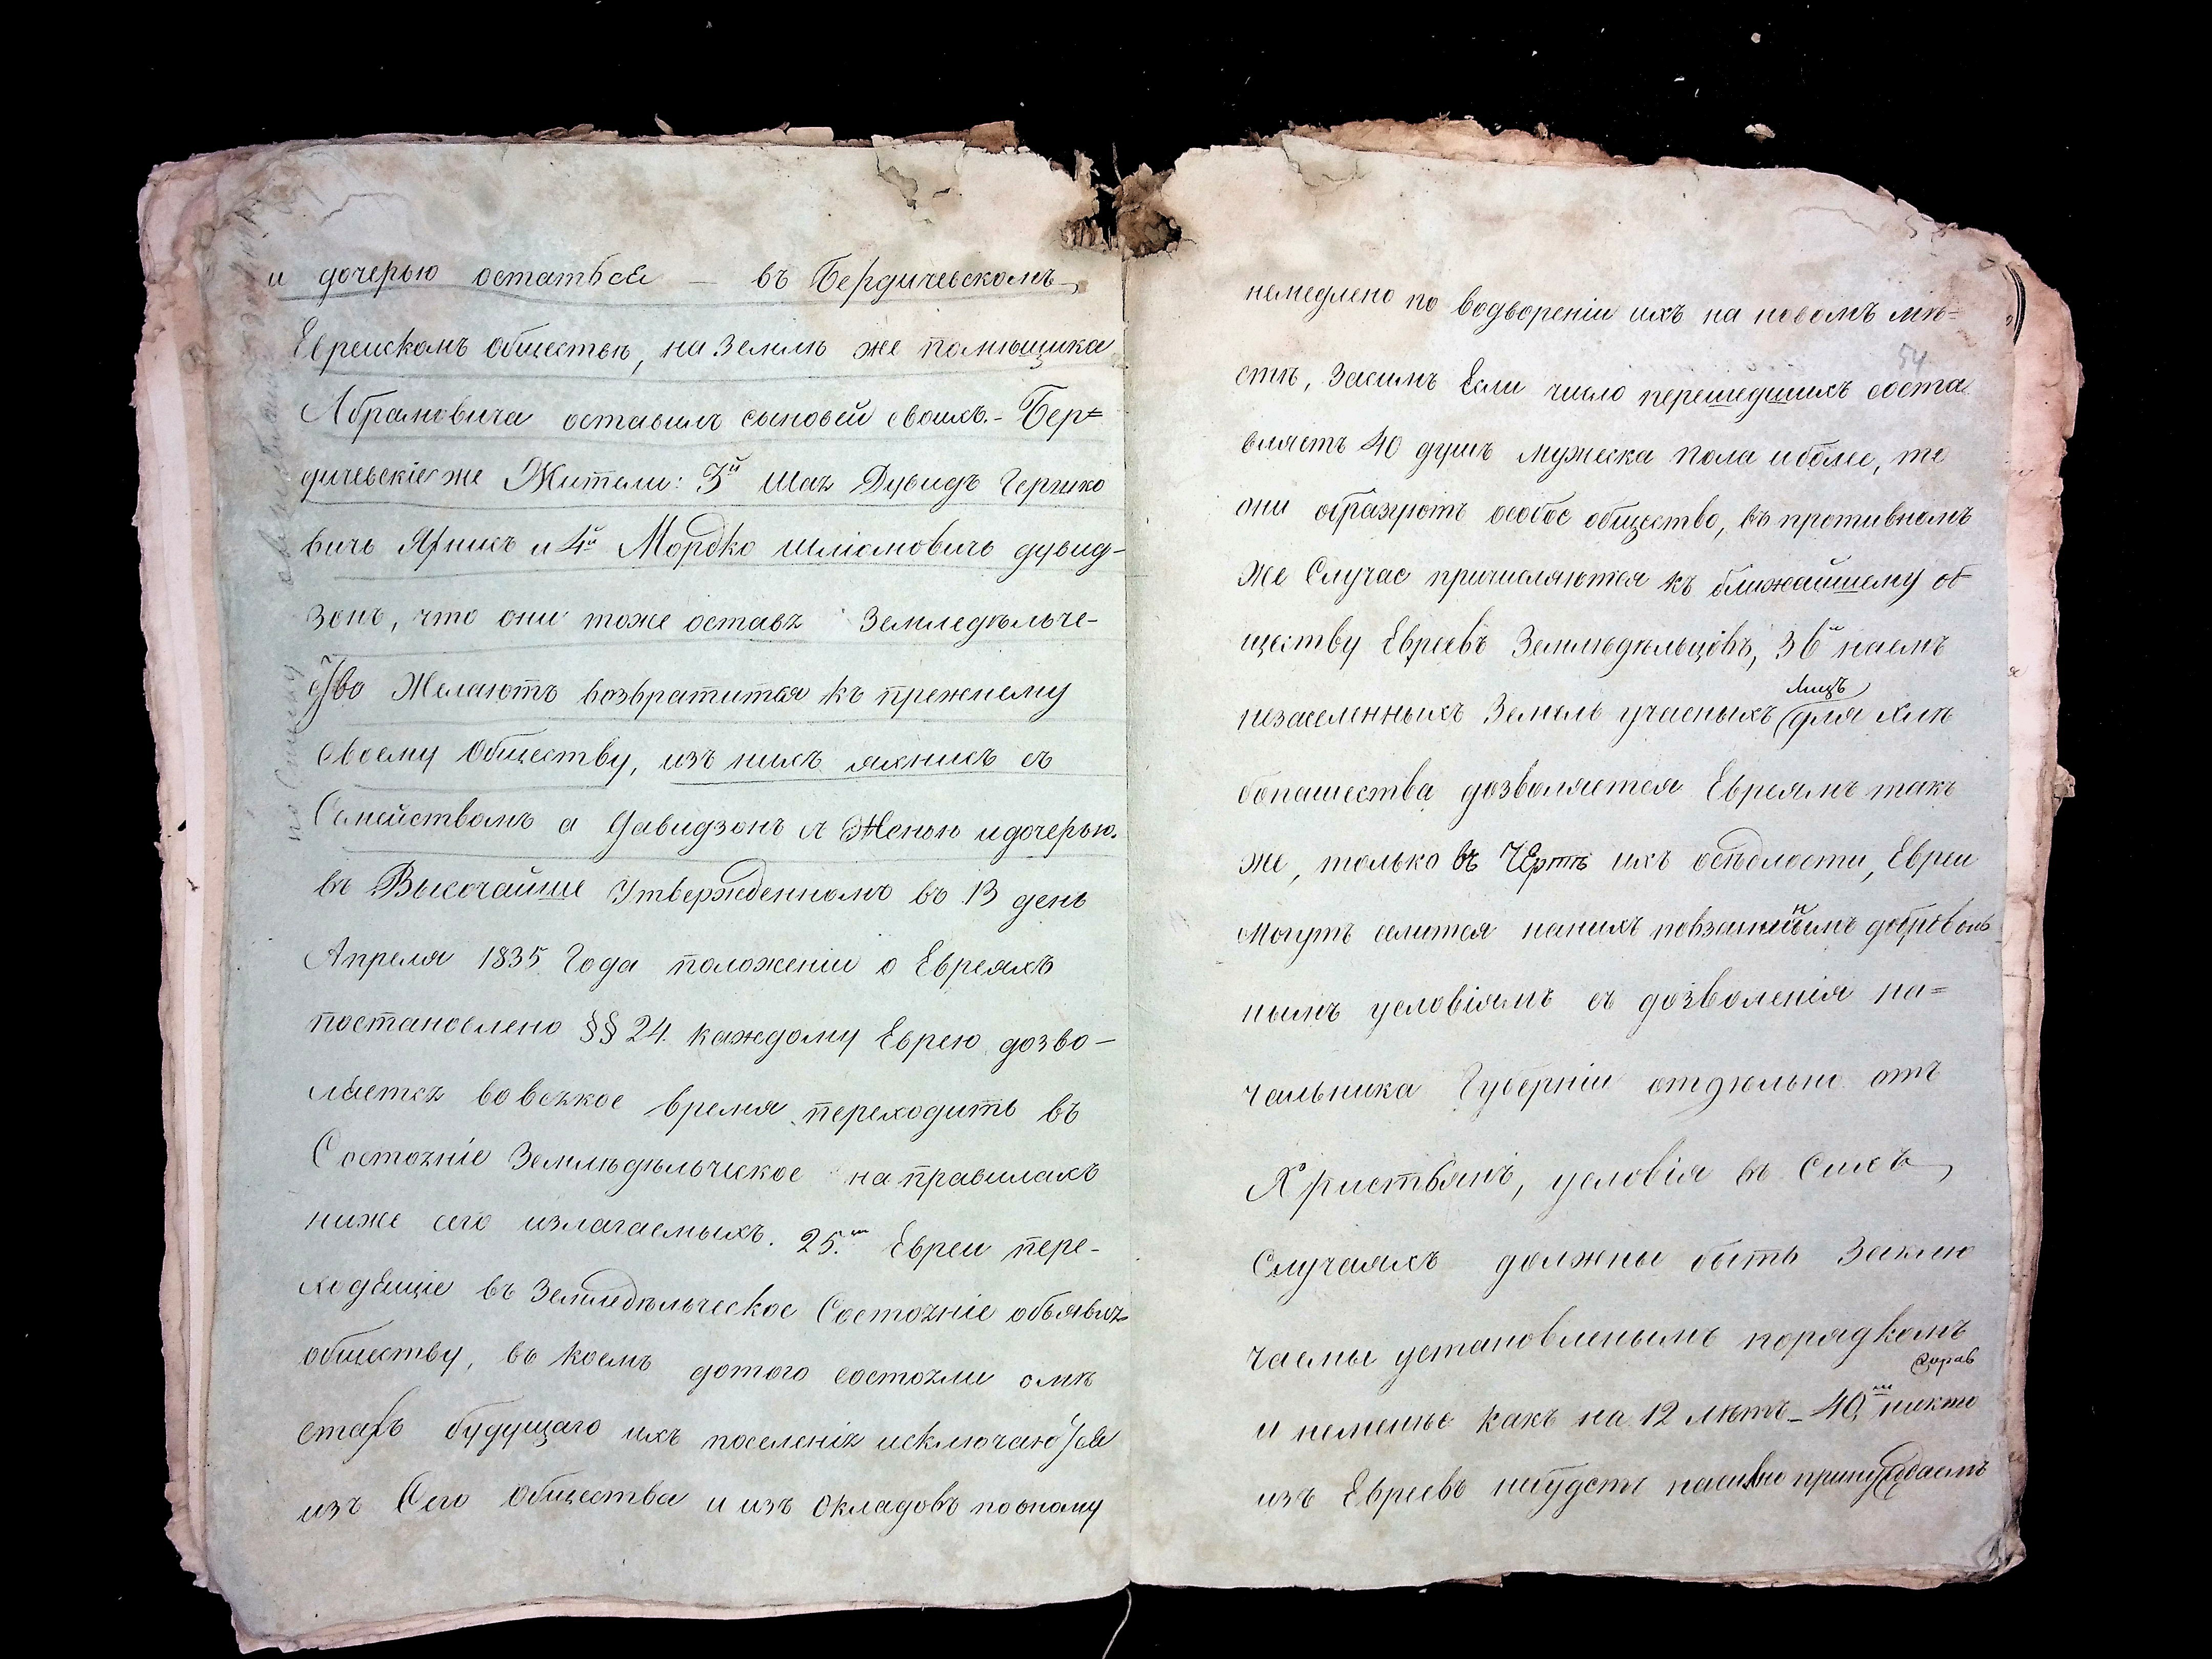 и дочерью остаться — въ Бердичевскомъ
Евреискомъ обществѣ, на землѣ же помѣщика
Абрамовича оставилъ сыновей своихъ. - Бер=
дичевскіе же Жители: 3й Шая Дувидъ Гершко
вичъ Яхникъ и 4й Мордко Шліомовичъ дувид-
зонъ, что они тоже оставя Земледѣльче-
ство Желаютъ возвратится къ прежнему
своему Обществу, изъ нихъ яхникъ съ
Семействомъ а Давидзонъ съ Женою и дочерью.
въ Высочайше Утвержденномъ въ 13 день
Апреля 1835 Года положеніи о Евреяхъ
постановлено §§ 24. каждому Еврею дозво-
ляется во всякое время переходить въ
Состояніе Землѣдѣльческое на правилахъ
ниже сего излагаемыхъ. 25. Евреи пере-
ходящіе въ Земледѣльческое Состояніе объявля
обществу, въ коемъ дотого состояли о мѣ
стахъ будущаго ихъ поселенія исключаются
изъ Сего Общества и изъ Окладовъ по оному
54
немедлено по водвореніи ихъ на новомъ мѣ=
стѣ, засимъ Если число перешедшихъ соста
вляетъ 40 душъ мужеска пола и более, то
они образуютъ особое общество, въ противномъ
же Случае причисляются къ ближайшему об
ществу Евреевъ Землѣдѣльцовъ, 36 наемъ
незаселенныхъ Земель участныхъ лицъ для хлѣ
бопашества дозволяется Евреямъ такъ
же, только въ Чертѣ ихъ осѣдлости, Евреи
могутъ селится на нихъ по взаимнымъ доброволь
нымъ условіямъ съ дозволенія на=
чальника Губерніи отдѣльно отъ
Христьянъ, условія въ Сихъ
Случаяхъ должны быть Заклю
чаемы установленымъ порядкомъ
и неменье какъ на 12 лѣтъ - 40. никто
изъ Евреевъ небудетъ насильно принуждаемъ